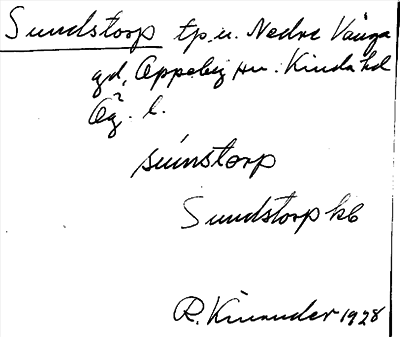 Sundstorp tp. u. Nedre Vänga
gd, Oppeby sn. Kinda hd
Ög. l.
súnstorp
Sundstorp kb
R. Kinander 1928